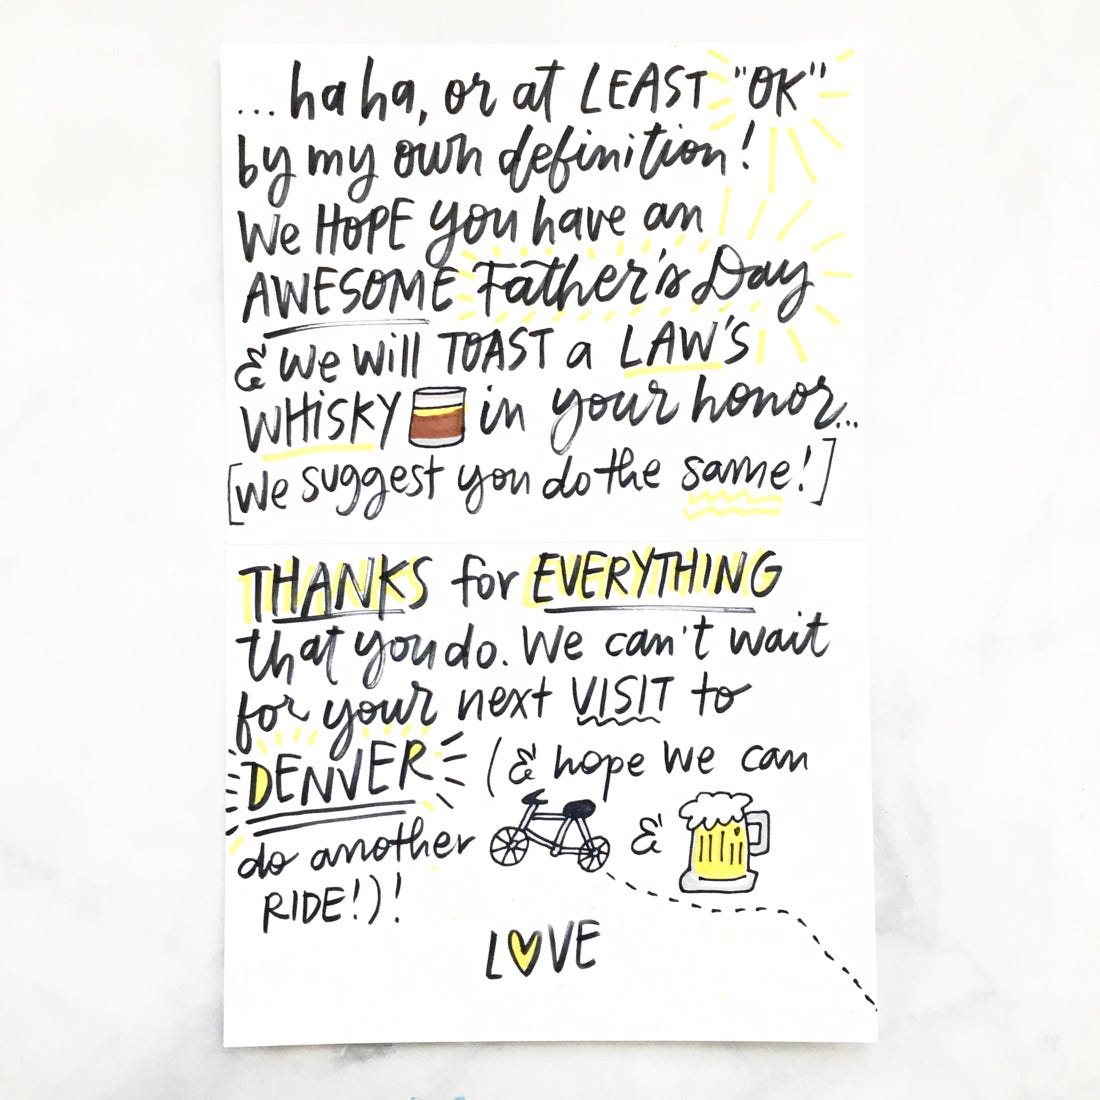 ...haha, or at LEAST "OK"
by my own definition!
We HOPE you have an
AWESOME Father's Day
& we will TOAST a LAW'S
WHISKY in your honor...
[we suggest you do the same!]
THANKS for EVERYTHING
that you do. We can't wait
for your next VISIT to
DENVER (& hope we can
do another &
RIDE!)!
LOVE